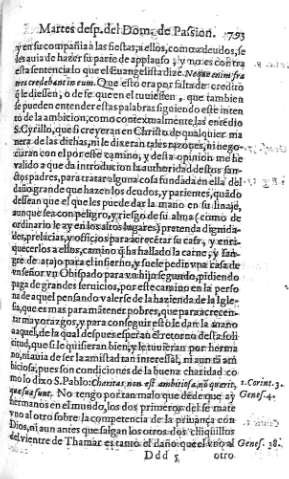 Martes desp. del Dom. de Passion. 793
y en su compañia à las fiestas; a ellos, como a deudos, se
les auia de hazer su parte de applauso; y no es contra
esta sentencia lo que el Euangelista dize. Neque enim fra
tres credebant in eum. Que esto era por falta de credito
q̃ le diessen, o de fe que en el tuuiessen, que tambien
se pueden entender estas palabras siguiendo este inten
to de la ambicion, como contextualmente las entẽdio
S. Cyrillo, que si creyeran en Christo de qualquier ma
nera de las dichas, ni le dixeran tales razones, ni nego
ciaran con el por este camino, y desta opinion me he
valido a que da introducion la authoridad destos san-
ctos padres, para tratar alguna cosa fundada en ella del
daño grande que hazen los deudos, y parientes, quãdo
dessean que el les puede dar la mano en su linaje,
aunque sea con peligro, y riesgo de su alma (como de
ordinario le ay en los altos lugares) pretenda dignida-
des, prelacias, y officios para acrecẽtar su casa, y enri-
quecerlos a ellos, camino q̃ ha hallado la carne, y san-
gre de atajo para el infierno, y suele pedir vna casa de
vn señor vn Obispado para vn hijo segundo, pidiendo
paga de grandes seruicios, por este camino en la perso
na de aquel pensando valerse de la hazienda de la Igle-
sia, que es mas para mãtener pobres, que para acrecen-
tar mayorazgos, y para conseguir esto le dan la mano
a aquel, de la qual despues esperan el retorno desta soli
citud, que si le quisieran bien, y le tuuieran por herma
no, ni auia de ser la amistad tan interessal, ni aun tã am
biciosa, pues son condiciones de la buena charidad co
mo lo dixo S. Pablo: Charitas non est ambitiosa, nõ quærit, 1. Corint. 3.
quæ sua sunt. No tengo por tan malo que dẽde que ay Genes. 4.
hermanos en el mundo, los dos primeros del se mate
vno al otro sobre la competencia de la priuança con
Dios, ni aun antes que salgan los otros dos chiquillos
del vientre de Thamar es tanto el daño que el vno al Genes. 38.
D d d 5 otro